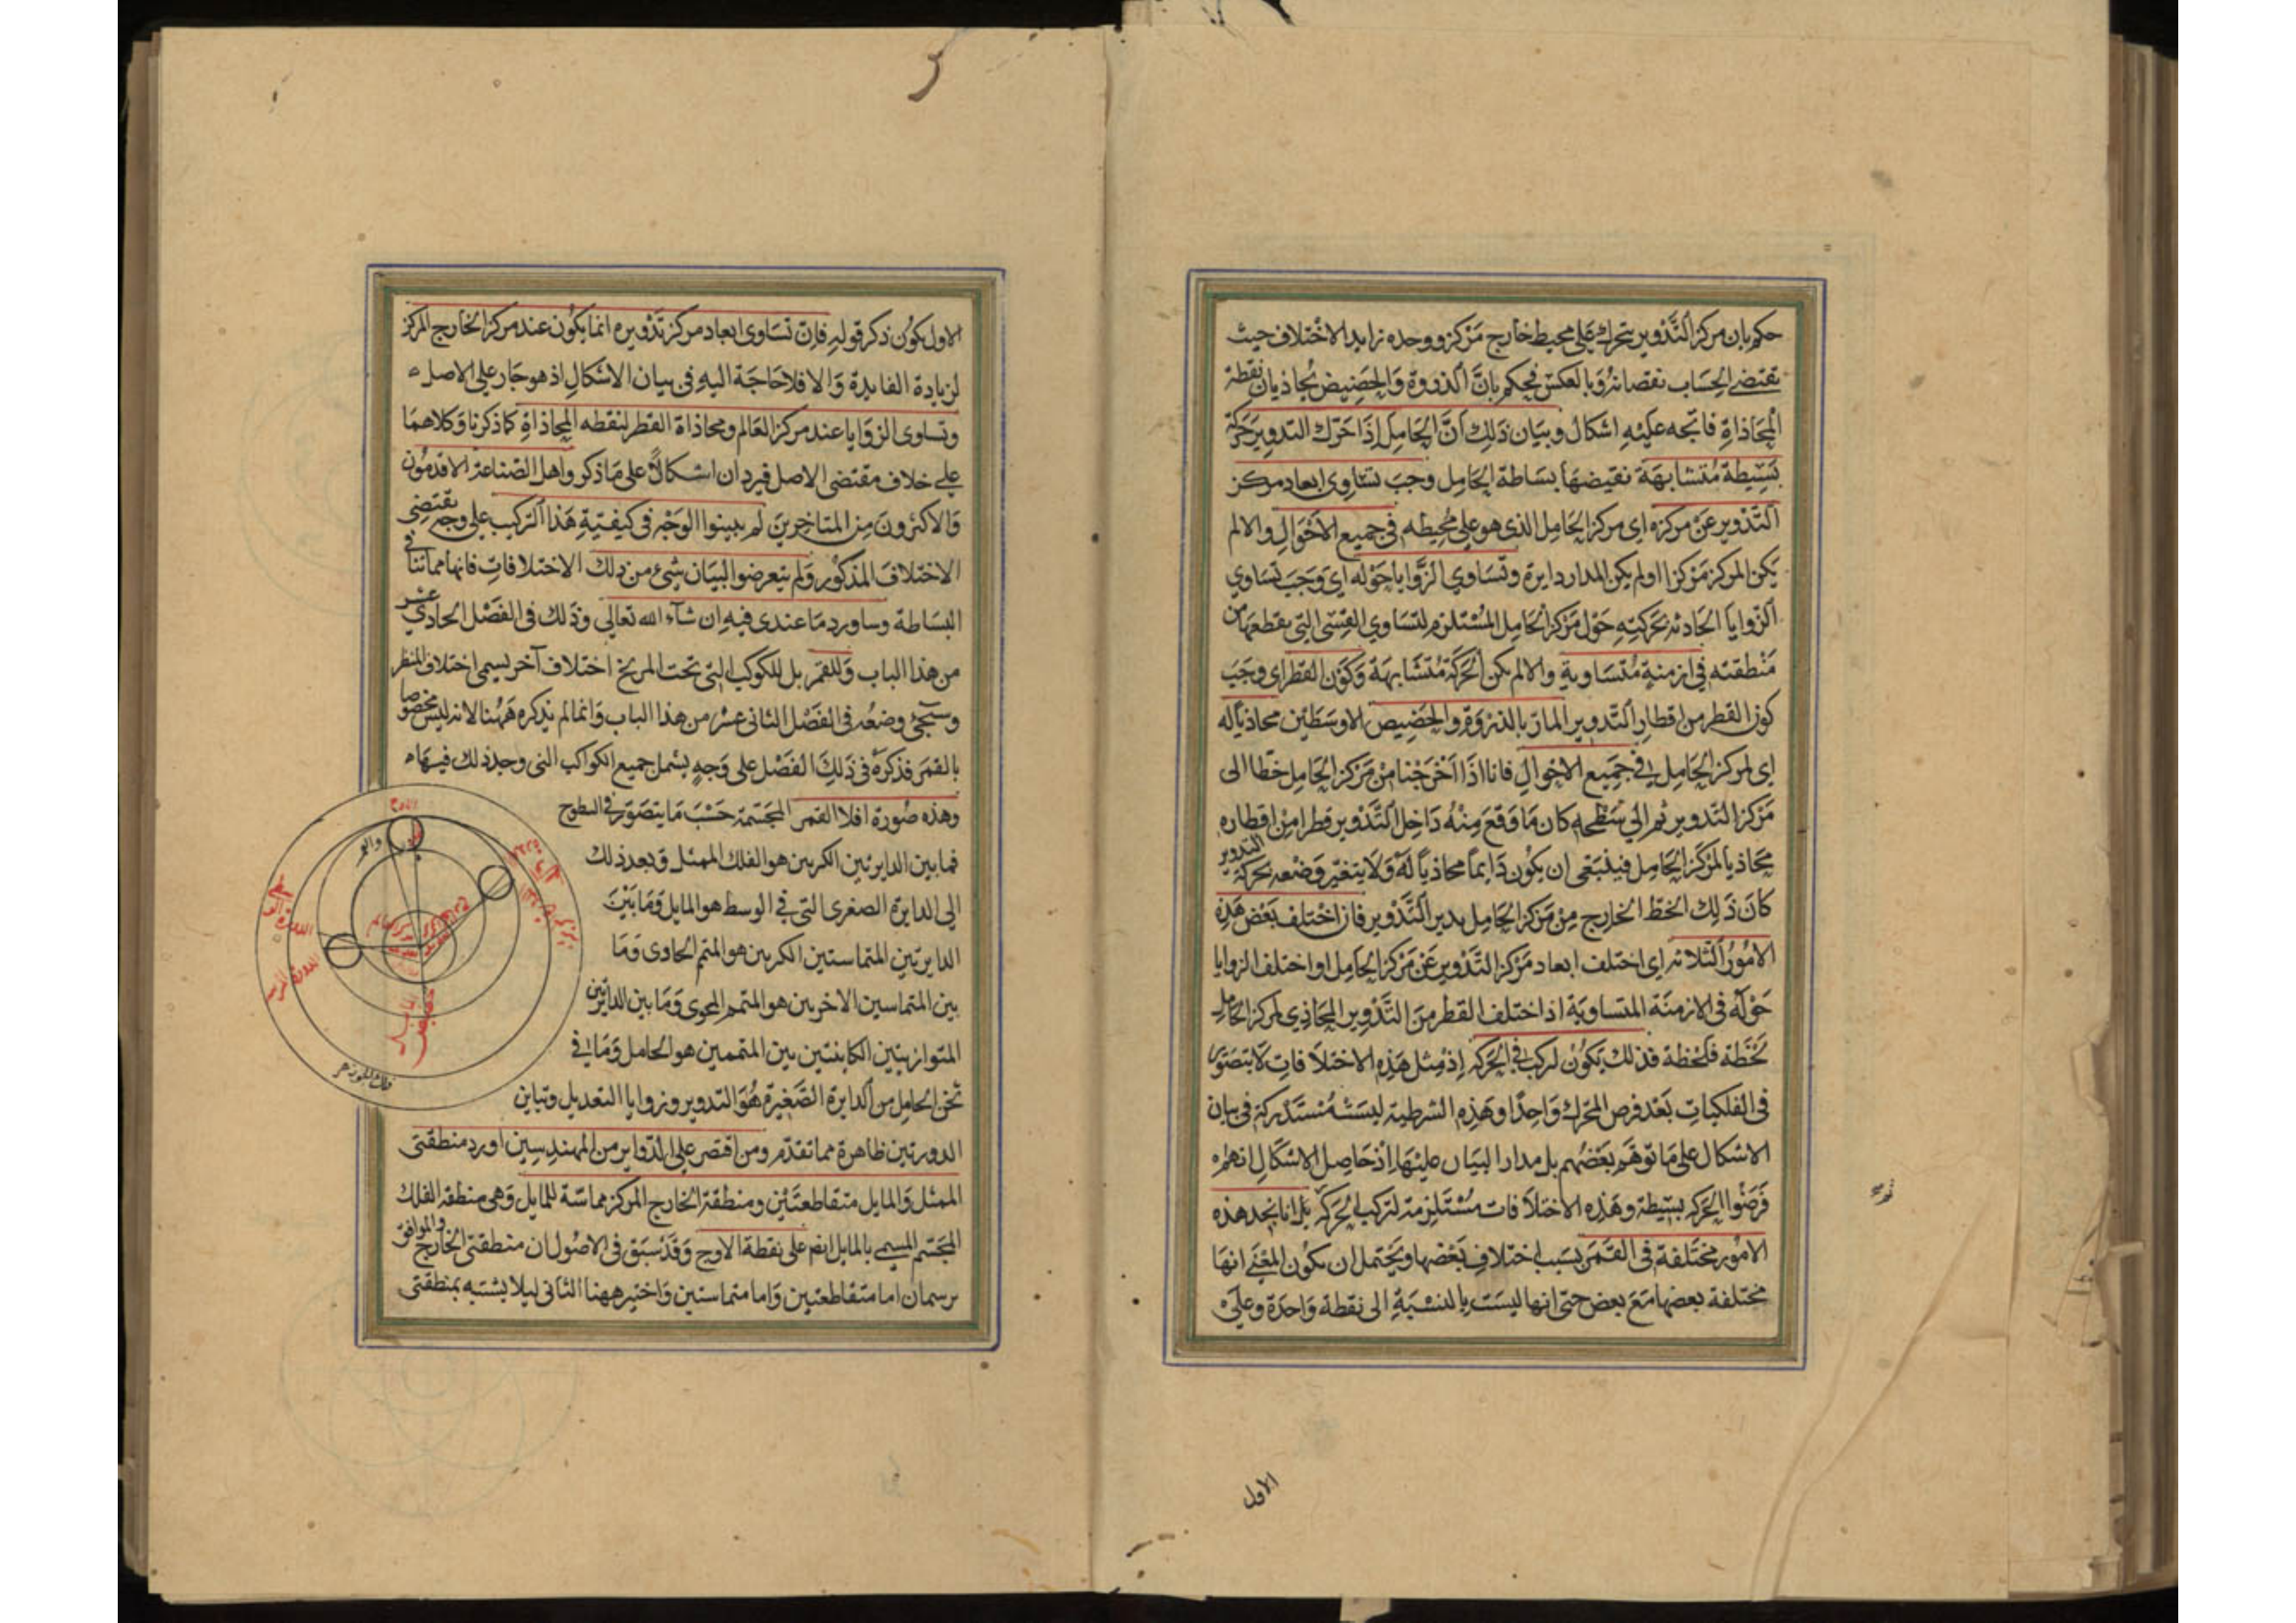 حكم بان مركز التدوير يتحرك على محيط خارج مركز ووحده تزايد الاختلاف حيث
يقتضى الحساب نقصانه وبالعكس فيحكم بان الذروة والحضيض يحاذيان نقطة
المحاذاة فاتجه عليه اشكال وبيان ذلك ان الحامل اذا حرك التدوير حركة
بسيطة متشابهة نقيضها بساطة الحامل وجب تساوى ابعاد مركز
التدوير عن مركزه اى مركز الحامل الذى هو على محيطه فى جميع الاحوال والا لم
يكن المركز مركزا او لم يكن المدار دايرة وتساوى الزوايا حوله اى وجب تساوى
الزوايا الحادثة بحركته حول مركز الحامل المستلزم لتساوى القسى التى يقطعها من
منطقته فى ازمنة متساوية والا لم تكن الحركة متشابهة وكون القطر اى وجب
كون القطر من اقطار التدوير المار بالذروة والحضيض الاوسطين محاذيا له
اى لمركز الحامل فى جميع الاحوال فانا اذا اخرجنا من مركز الحامل خطا الى
مركز التدوير ثم الى سطحه كان ما وقع منه داخل التدوير قطرا من اقطاره
محاذيا لمركز الحامل فينبغى ان يكون دايما محاذيا له ولا يتغير وضعه بحركة التدوير
كان ذلك الخط الخارج من مركز الحامل يدير التدوير فان اختلف بعض هذه
الامور الثلاثة اى اختلف ابعاد مركز التدوير عن مركز الحامل او اختلف الزوايا
حوله فى الازمنة المتساوية اذ اختلف القطر من التدوير المحاذى لمركز الحامل
لحظة فلحظة فذلك يكون لتركب فى الحركة اذ مثل هذه الاختلافات لا يتصور
فى الفلكيات بعد فرض المحرك واحدا وهذه الشرطية ليست مستدركة فى بيان
الاشكال على ما توهم بعضهم بل مدار البيان عليها اذ حاصل الاشكال انهم
فرضوا الحركة بسيطة وهذه الاختلافات مستلزمة لتركب الحركة بل انا نجد هذه
الامور مختلفة فى القمر بسبب اختلاف بعضها ويحتمل ان يكون المعنى انها
مختلفة بعضها مع بعض حتى انها ليست بالنسبة الى نقطة واحدة وعلى
الاول
الاول يكون ذكر قوله فان تساوى ابعاد مركز تدويره انما يكون عند مركز الخارج المركز
لزيادة الفايدة والا فلا حاجة اليه فى بيان الاشكال اذ هو جار على الاصل
وتساوى الزوايا عند مركز العالم ومحاذاة القطر لنقطه المحاذاة كما ذكرنا وكلاهما
على خلاف مقتضى الاصل فيردان اشكالا على ما ذكر واهل الصناعة الاقدمون
والاكثرون من المتاخرين لم يبينوا الوجه فى كيفية هذا التركيب على وجه يقتضى
الاختلاف المذكور ولم يتعرضوا لبيان شىء من ذلك الاختلافات فانها مما تنافى
البساطة وساورد ما عندى فيه ان شآء الله تعالى وذلك فى الفصل الحادى عشر
من هذا الباب وللقمر بل للكوكب التى تحت المريخ اختلاف آخر يسمى اختلاف المنظر
وسيجئ وضعه فى الفصل الثانى عشر من هذا الباب وانما لم يذكره ههنا لانه ليس مخصوصا
بالقمر فذكره فى ذلك الفصل على وجه يشمل جميع الكواكب التى وجد ذلك فيها
وهذه صورة افلاك القمر المجسمة حسب ما يتصور فى السطوح
فما بين الدايرتين الكبريين هو الفلك الممثل وبعد ذلك
الى الدايرة الصغرى التى فى الوسط هو المايل وما بين
الدايرتين المتماستين الكبريين هو المتمم الحاوى وما
بين المتماسين الاخريين هو المتمم المحوى وما بين الدايرتين
المتوازيتين الكاينتين بين المتممين هو الحامل وما فى
ثخن الحامل من الدايرة الصغيرة هو التدوير وزوايا التعديل وتباين
الدورتين ظاهرة مما تقدم ومن اقتصر على الدواير من المهندسين اورد منطقتى
الممثل والمايل متقاطعتين ومنطقة الخارج المركز مماسة للمايل وهى منطقة الفلك
المجسم المسمى بالمايل انه على نقطة الاوج وقد سبق فى الاصول ان منطقتى الخارج والموافق
يرسمان اما متقاطعتين واما متماستين واختير ههنا الثانى ليلا يشتبه بمنطقتى
الاوج
فلك الجوزهر